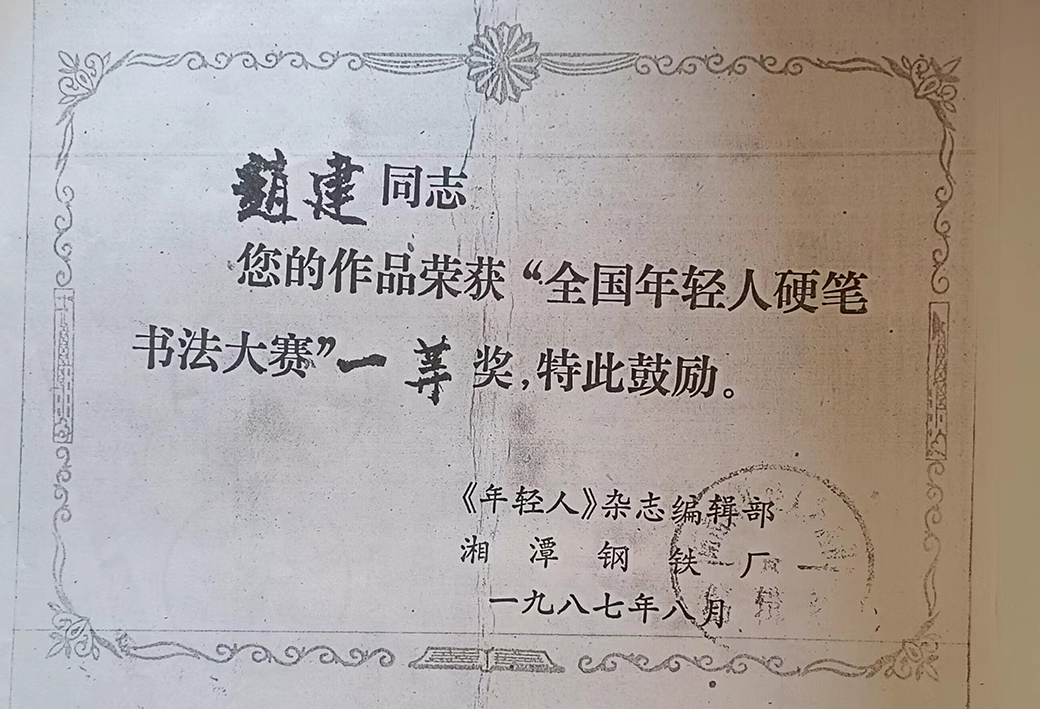 趙建同志
您的作品荣获“全国年轻人硬笔
书法大赛”一等奖,特此鼓励。
《年轻人》杂志编辑部
湘潭钢铁厂
一九八七年八月